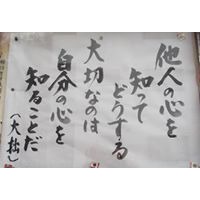 他人の心を
知って
どうする
大切なのは
自分の心を
知ることだ
(大拙)